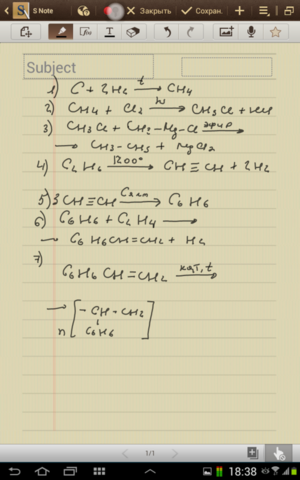 S Note
Закрыть
Сохран.
Subject
1) C + 2H2 t→ CH4
2) CH4 + Cl2 hν→ CH3Cl + HCl
3) CH3Cl + CH3-Mg-Cl эфир→
→ CH3-CH3 + MgCl2
4) C2H6 1200°→ CH≡CH + 2H2
5) 3CH≡CH Cакт→ C6H6
6) C6H6 + C2H4 →
→ C6H6CH=CH2 + H2
7)
C6H6CH=CH2 кат, t→
→ [-CH-CH2
n C6H6 ]
1/1
18:38